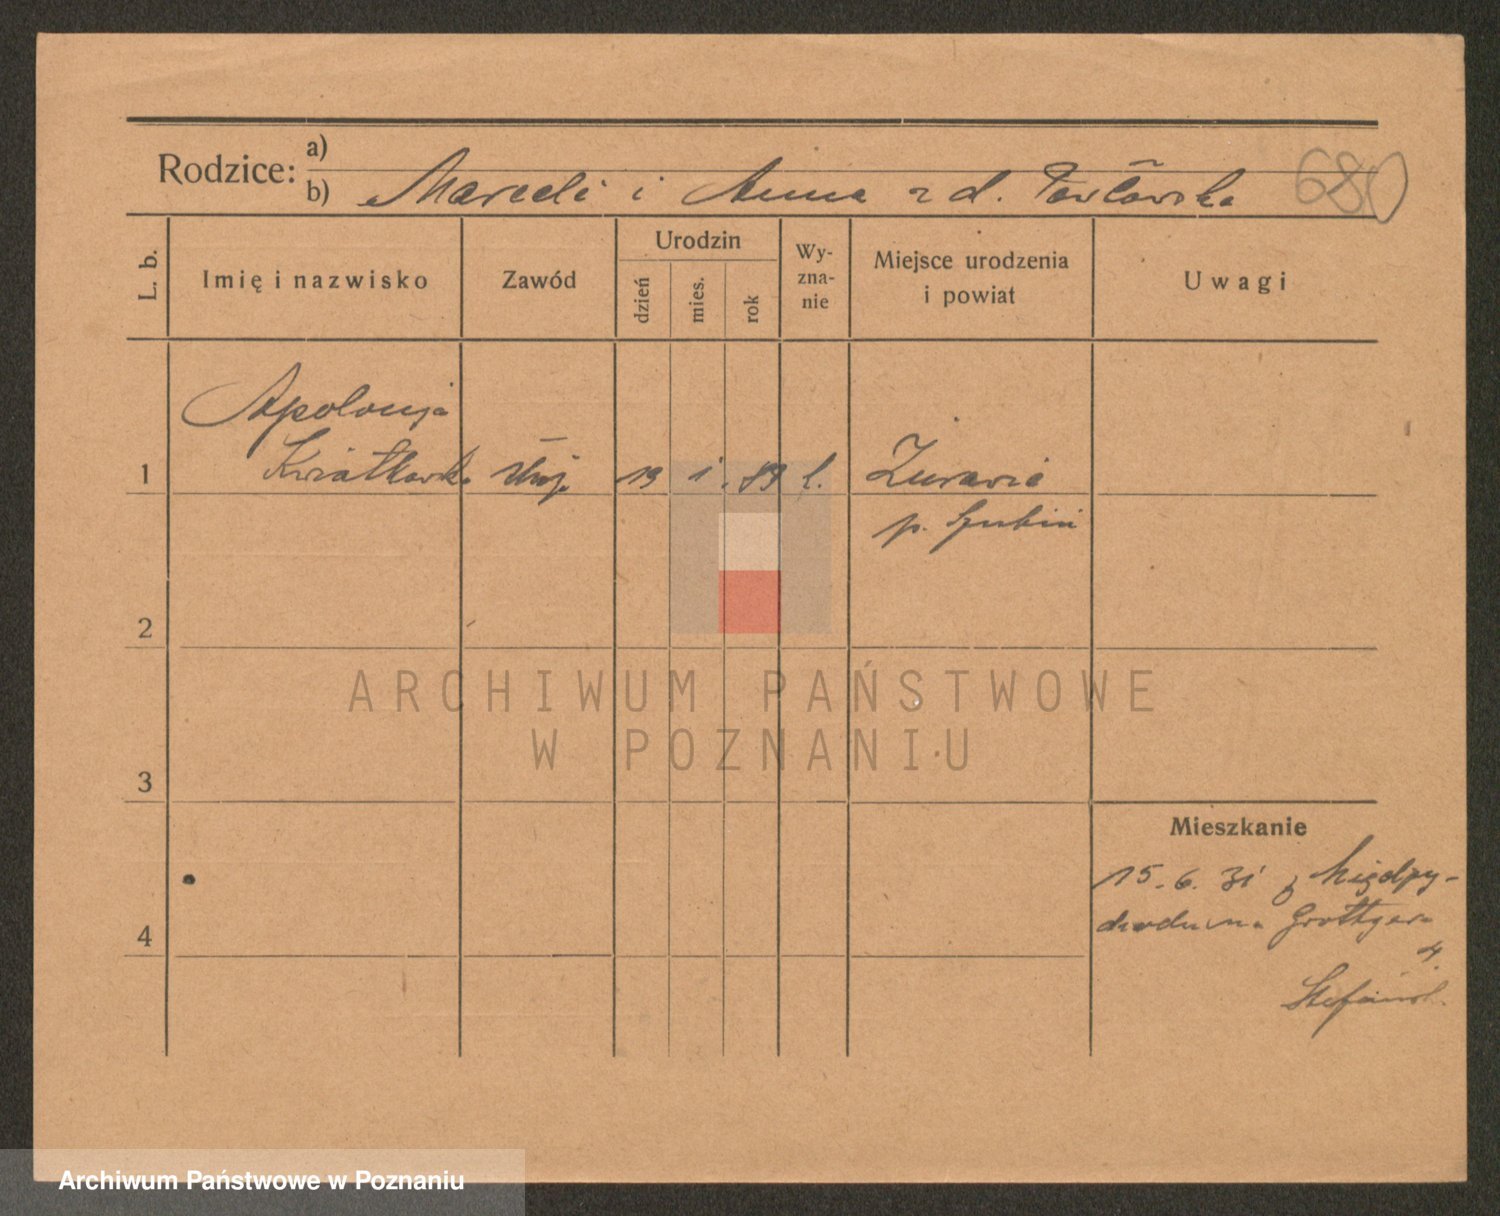 Rodzice: a)
b) Marceli i Anna z d. Pawłowska 680
L. b. Imię i nazwisko Zawód Urodzin dzień mies. rok Wy-zna-nie Miejsce urodzenia i powiat Uwagi
Apolonja
1 Kwiatkowska służ. 19 1. 89 k. Żurawia
p. Szubin
2
ARCHIWUM PAŃSTWOWE
W POZNANIU
3
Mieszkanie
15.6.31 z Między-
chodu na Grottgera
4 4.
Archiwum Państwowe w Poznaniu